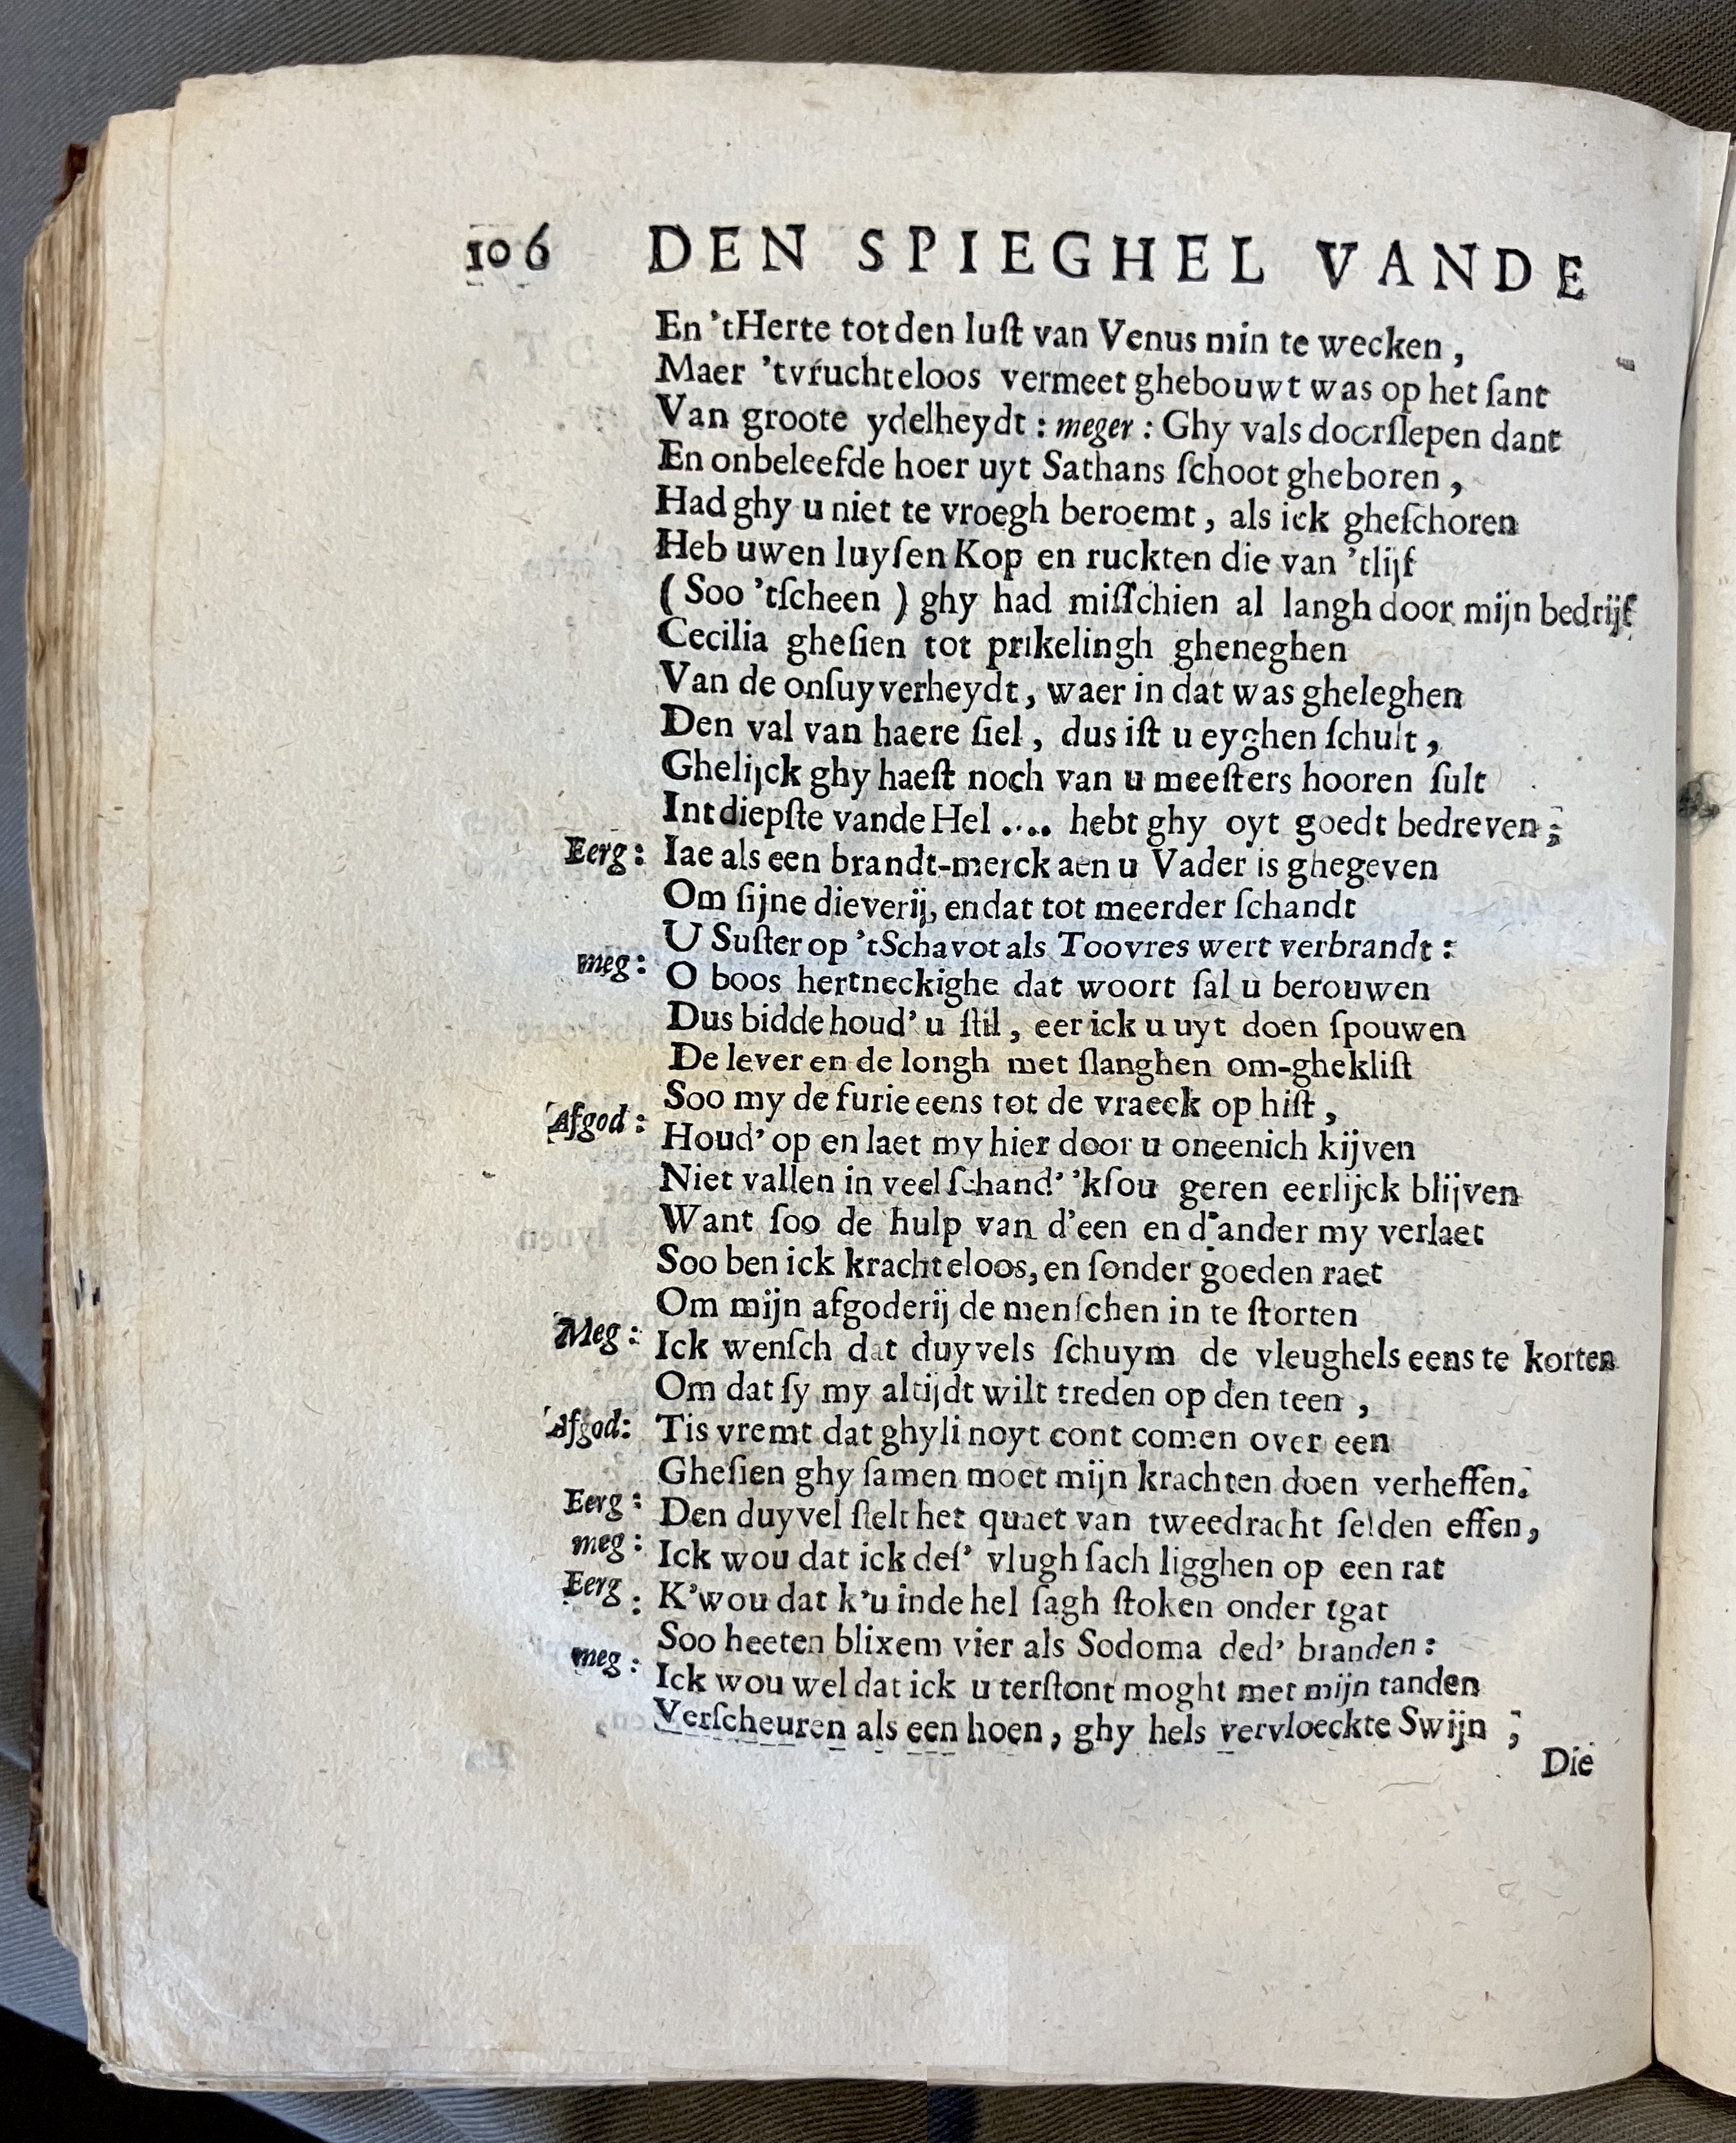 106 DEN SPIEGHEL VANDE
En 'tHerte tot den luſt van Venus min te wecken ,
Maer 'tvruchteloos vermeet ghebouwt was op het ſant
Van groote ydelheydt : meger : Ghy vals doorſlepen dant
En onbeleefde hoer uyt Sathans ſchoot gheboren ,
Had ghy u niet te vroegh beroemt , als ick gheſchoren
Heb uwen luyſen Kop en ruckten die van 'tlijf
( Soo 'tſcheen ) ghy had miſſchien al langh door mijn bedrijf
Cecilia gheſien tot prikelingh gheneghen
Van de onſuyverheydt , waer in dat was gheleghen
Den val van haere ſiel , dus iſt u eyghen ſchult ,
Ghelijck ghy haeſt noch van u meeſters hooren ſult
Int diepſte vande Hel .... hebt ghy oyt goedt bedreven ;
Eerg : Iae als een brandt-merck aen u Vader is ghegeven
Om ſijne dieverij, en dat tot meerder ſchandt
U Suſter op 'tSchavot als Toovres wert verbrandt :
meg : O boos hertneckighe dat woort ſal u berouwen
Dus bidde houd' u ſtil , eer ick u uyt doen ſpouwen
De lever en de longh met ſlanghen om-ghekliſt
Soo my de furie eens tot de vraeck op hiſt ,
Afgod : Houd' op en laet my hier door u oneenich kijven
Niet vallen in veel ſchand' 'kſou geren eerlijck blijven
Want ſoo de hulp van d'een en d'ander my verlaet
Soo ben ick krachteloos, en ſonder goeden raet
Om mijn afgoderij de menſchen in te ſtorten
Meg : Ick wenſch dat duyvels ſchuym de vleughels eens te korten
Om dat ſy my altijdt wilt treden op den teen ,
Afgod: Tis vremt dat ghyli noyt cont comen over een
Gheſien ghy ſamen moet mijn krachten doen verheffen.
Eerg : Den duyvel ſtelt het quaet van tweedracht ſelden effen,
meg : Ick wou dat ick deſ' vlugh ſach ligghen op een rat
Eerg : K'wou dat k'u inde hel ſagh ſtoken onder tgat
Soo heeten blixem vier als Sodoma ded' branden :
meg : Ick wou wel dat ick u terſtont moght met mijn tanden
Verſcheuren als een hoen , ghy hels vervloeckte Swijn ;
Die